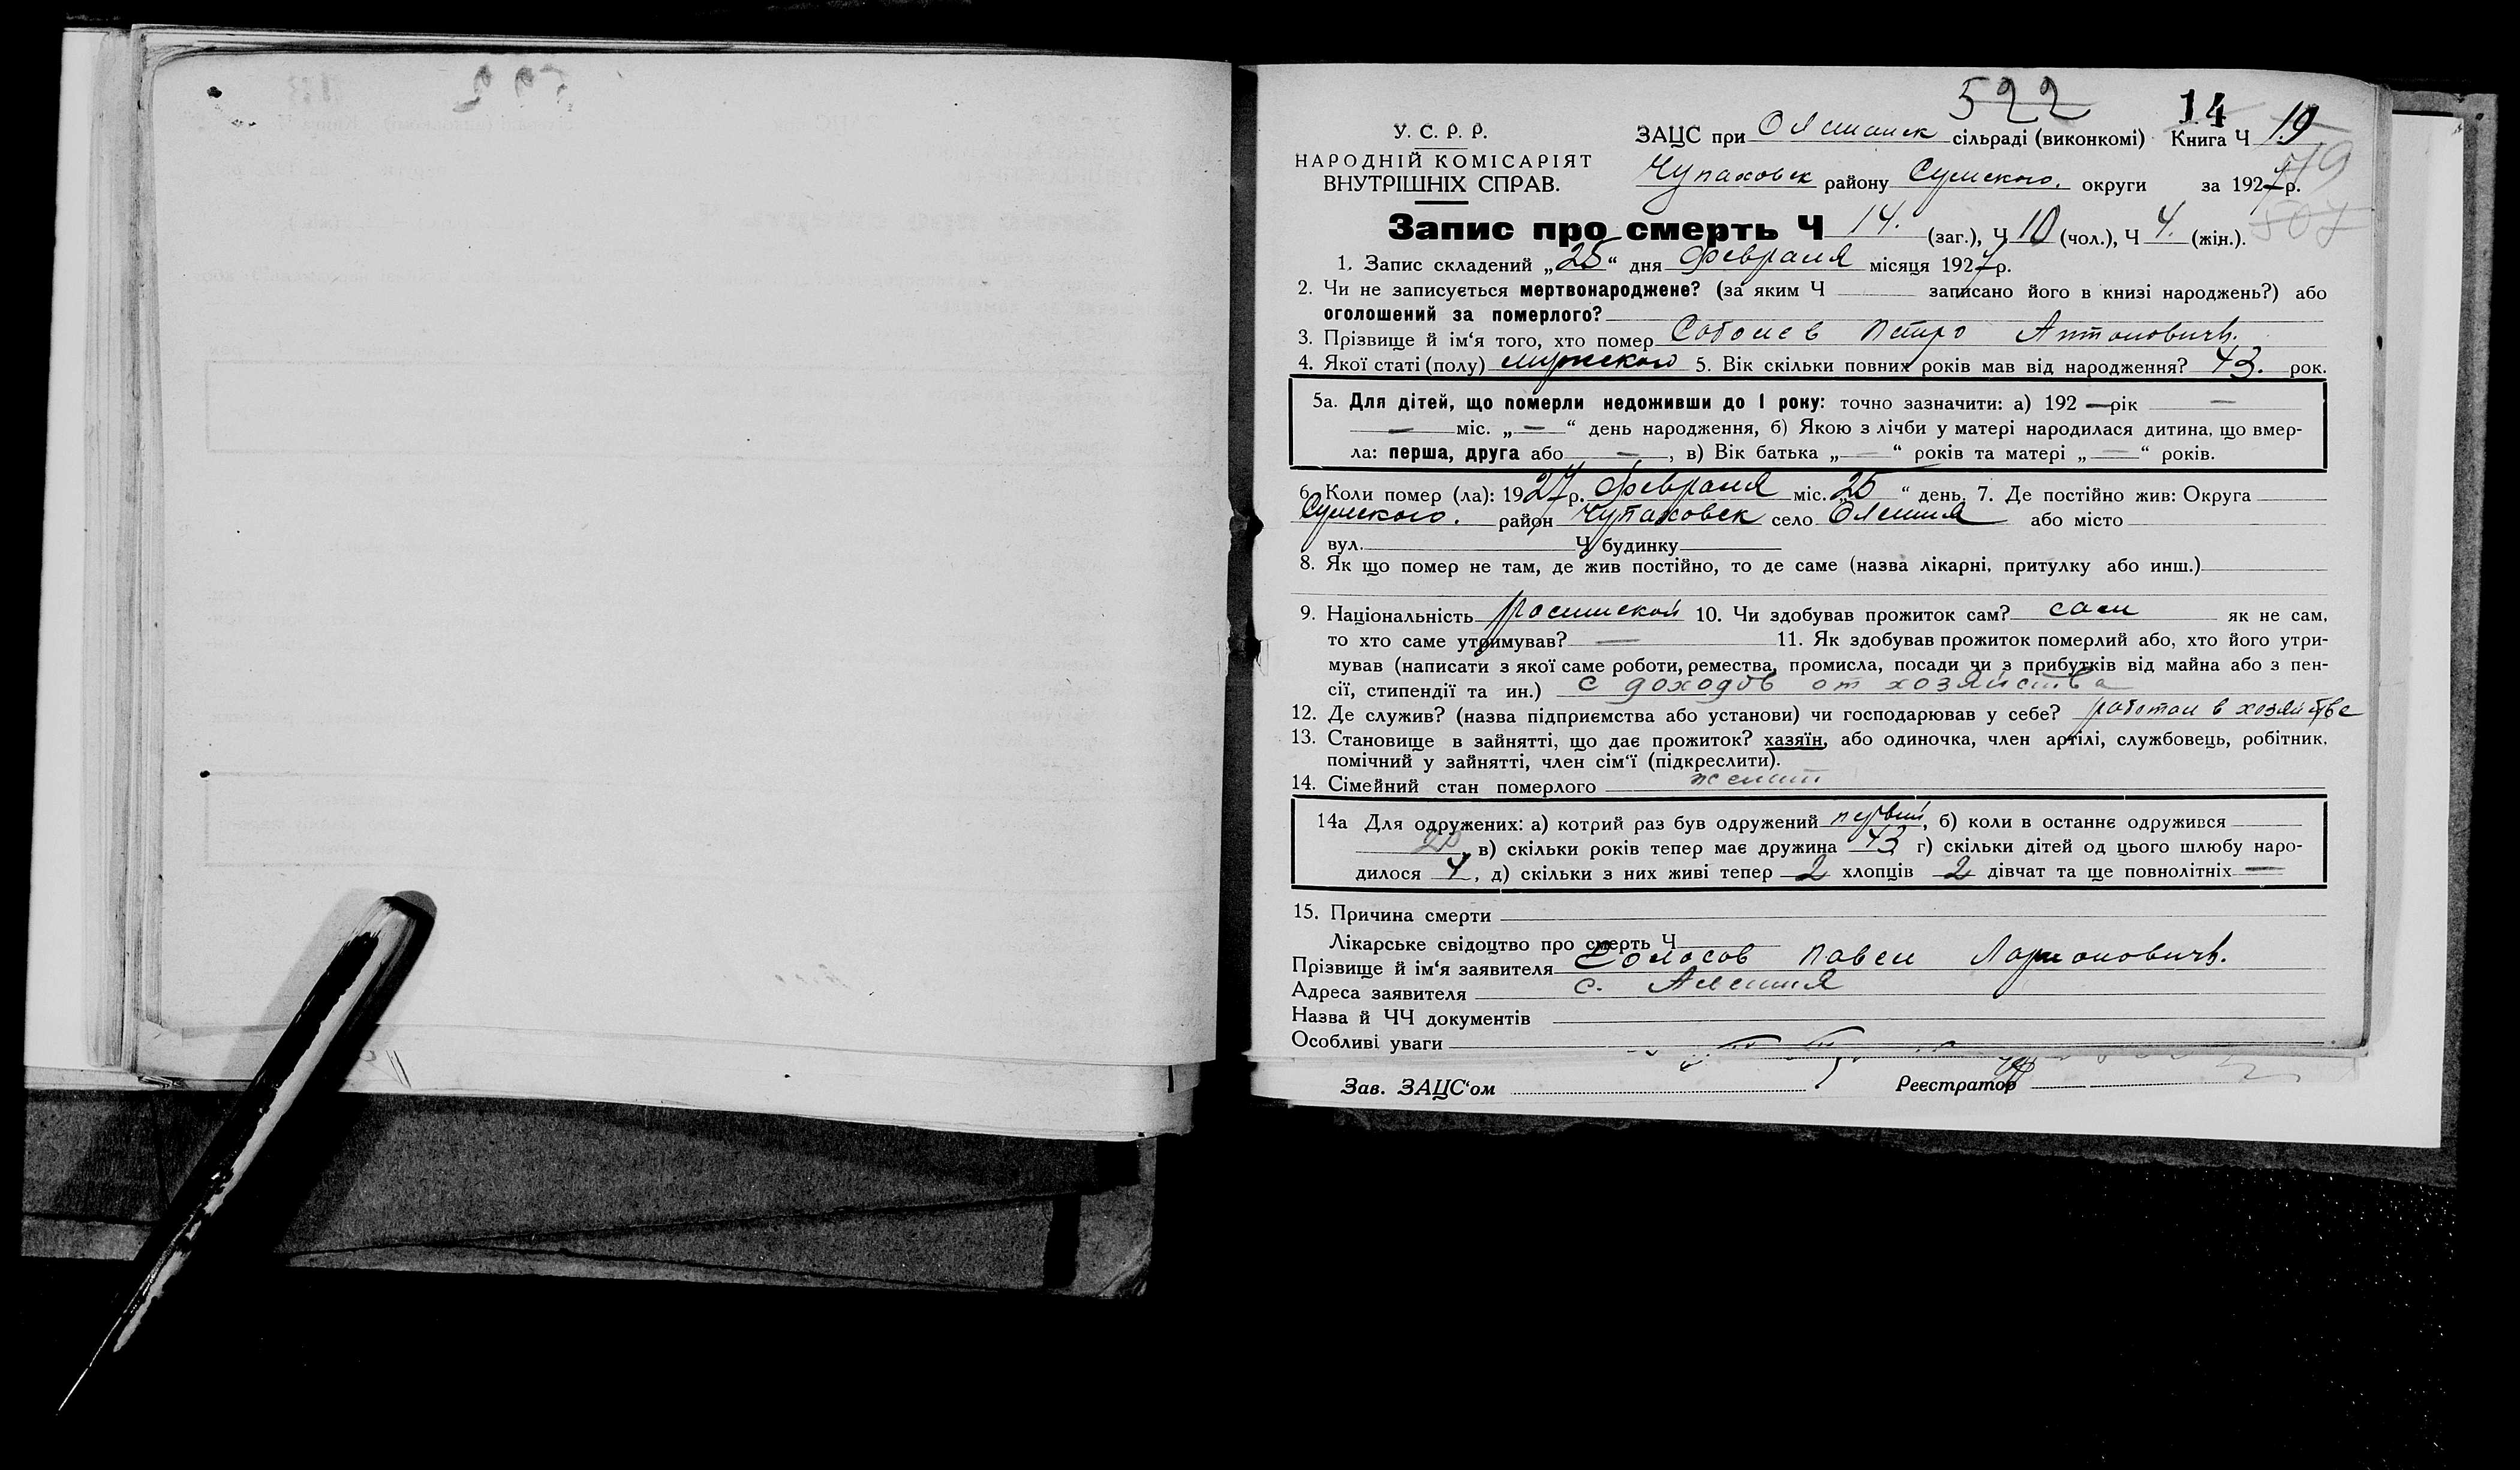 522 14
У. С. Р. Р. ЗАЦС при сільраді (виконкомі) Книга Ч 19
НАРОДНІЙ КОМІСАРІЯТ
ВНУТРІШНІХ СПРАВ. Чупаховск району Сумского. округи за 1927 р.
Запис про смерть Ч 14. (заг.), Ч 10 (чол.), Ч 4. (жін.). 507
1. Запис складений „25“ дня Февраля місяця 1927 р.
2. Чи не записується мертвонароджене? (за яким Ч записано його в книзі народжень?) або
оголошений за померлого?
3. Прізвище й ім‘я того, хто помер Соболев Петро Антонович.
4. Якої статі (полу) мужского 5. Вік скільки повних років мав від народження? 43. рок.
5а. Для дітей, що померли недоживши до 1 року: точно зазначити: а) 192 — рік —
— міс. „—“ день народження, б) Якою з лічби у матері народилася дитина, що вмер-
ла: перша, друга або —, в) Вік батька „—“ років та матері „—“ років.
6. Коли помер (ла): 1927 р. Февраля міс. „25“ день. 7. Де постійно жив: Округа
Сумского. район Чупаховск село Олешня або місто
вул. Ч будинку
8. Як що помер не там, де жив постійно, то де саме (назва лікарні, притулку або инш.)
9. Національність 10. Чи здобував прожиток сам? сам як не сам,
то хто саме утримував? — 11. Як здобував прожиток померлий або, хто його утри-
мував (написати з якої саме роботи, ремества, промисла, посади чи з прибутків від майна або з пен-
сії, стипендії та ин.) с доходов от хозяйства
12. Де служив? (назва підприємства або установи) чи господарював у себе? работал в хозяйстве
13. Становище в зайнятті, що дає прожиток? хазяїн, або одиночка, член артілі, службовець, робітник,
помічний у зайнятті, член сім‘ї (підкреслити).
14. Сімейний стан померлого женат
14а Для одружених: а) котрий раз був одружений первый, б) коли в останнє одружився
20, в) скільки років тепер має дружина 43 г) скільки дітей од цього шлюбу наро-
дилося 4, д) скільки з них живі тепер 2 хлопців 2 дівчат та ще повнолітніх —
15. Причина смерти
Лікарське свідоцтво про смерть Ч
Прізвище й ім‘я заявителя Павел
Адреса заявителя с. Алешня
Назва й ЧЧ документів
Особливі уваги
Зав. ЗАЦС‘ом Реєстратор